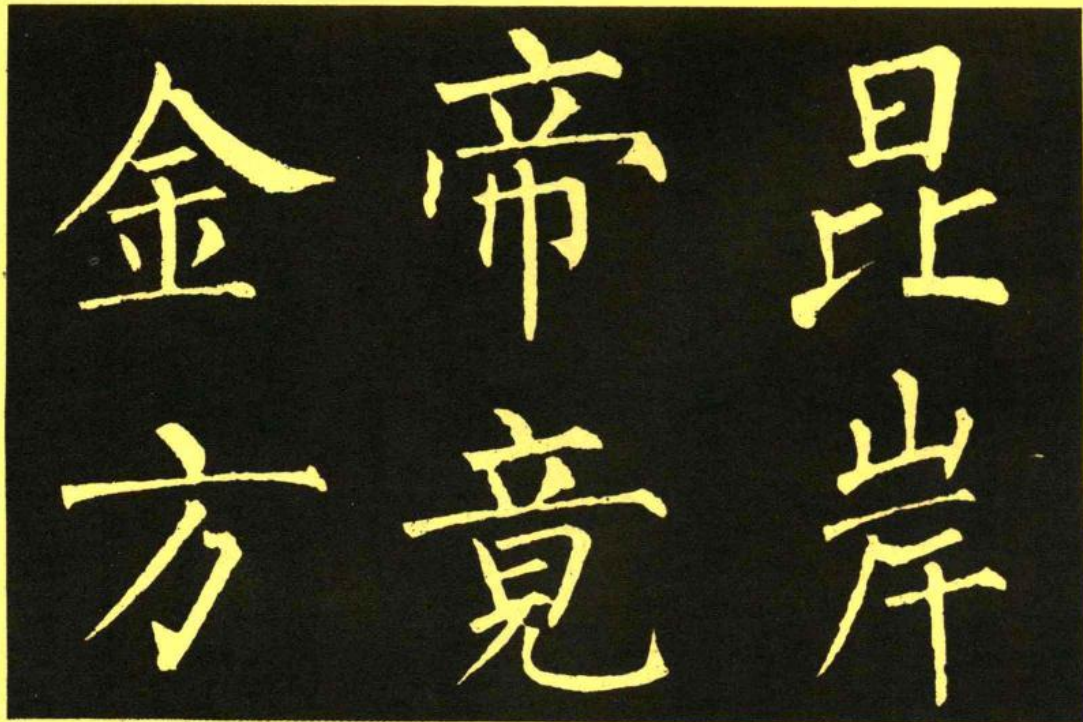 昆岸
帝竟
金方